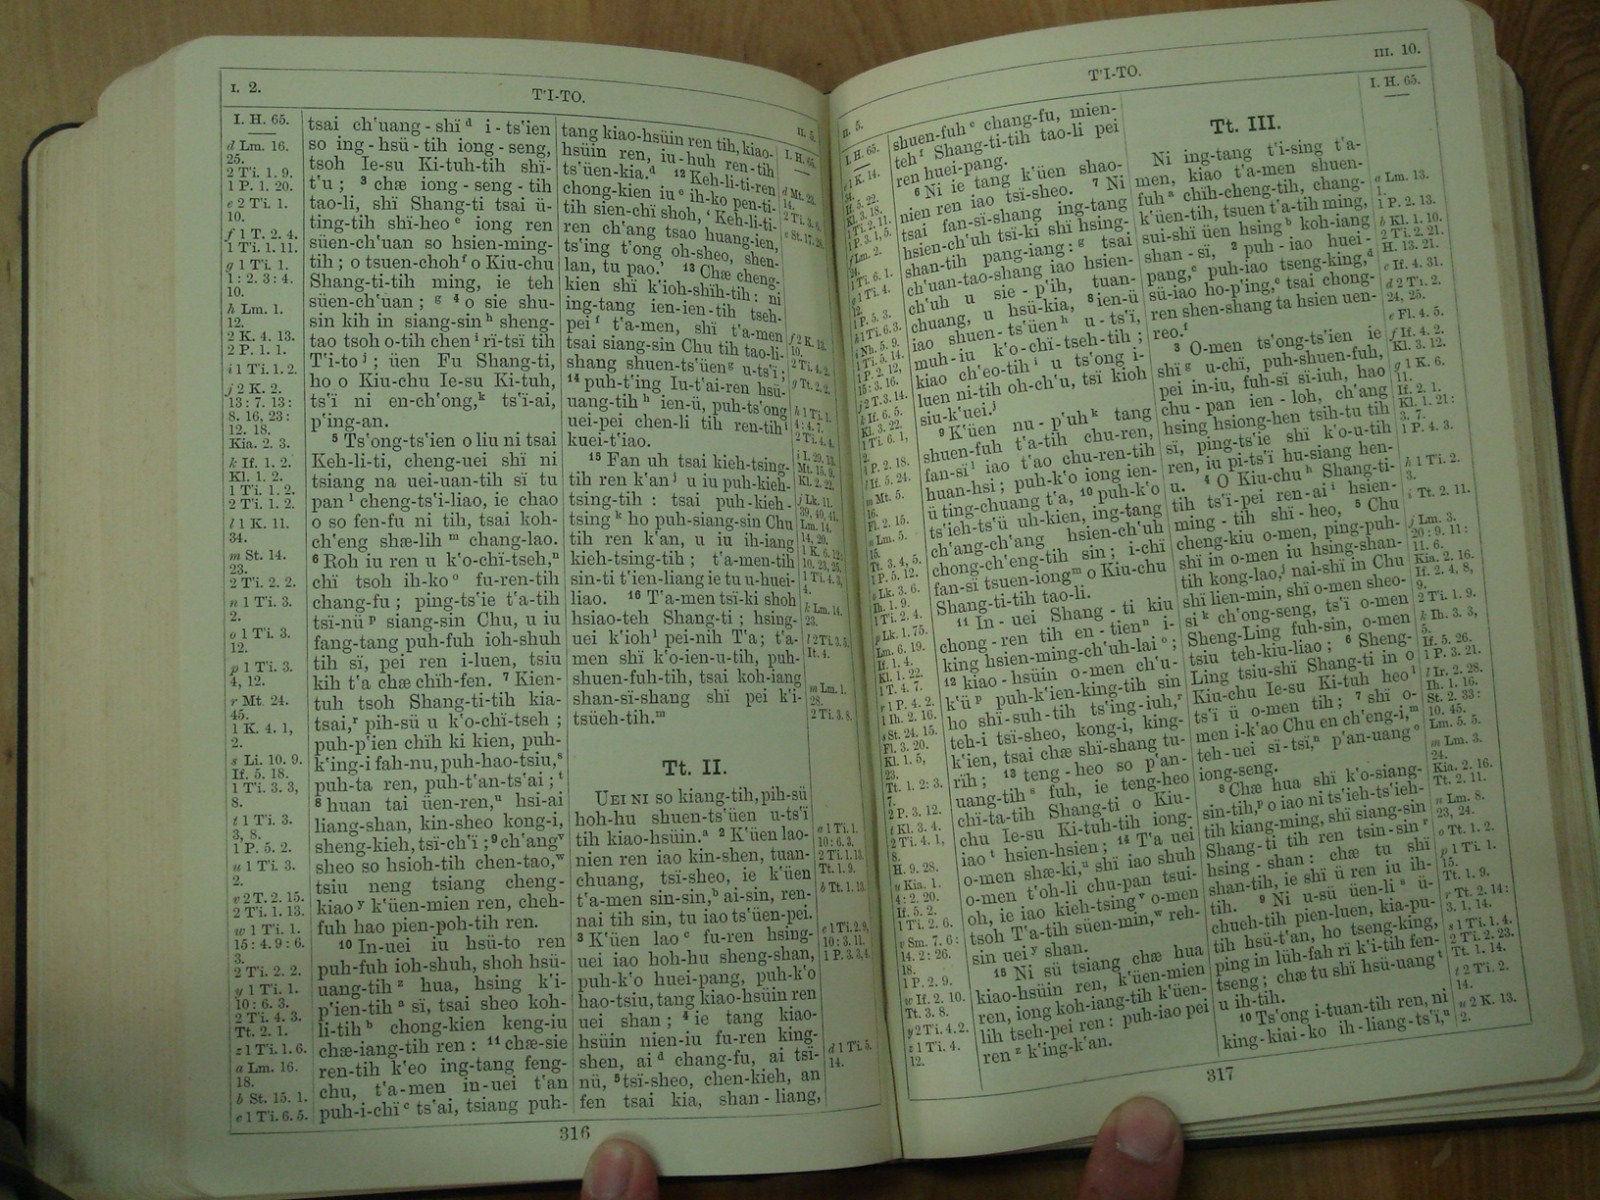 I. 2.
T'I-TO.
I. H. 65.
d Lm. 16.
25.
2 T'i. 1. 9.
1 P. 1. 20.
e 2 T'i. 1.
10.
f 1 T. 2. 4.
1 T'i. 1. 11.
g 1 T'i. 1.
1 : 2. 3 : 4.
10.
h Lm. 1.
12.
2 K. 4. 13.
2 P. 1. 1.
i 1 T'i. 1. 2.
j 2 K. 2.
13 : 7. 13 :
8. 16, 23 :
12. 18.
Kia. 2. 3.
k If. 1. 2.
Kl. 1. 2.
1 T'i. 1. 2.
2 T'i. 1. 2.
l 1 K. 11.
34.
m St. 14.
23.
2 T'i. 2. 2.
n 1 T'i. 3.
2.
o 1 T'i. 3.
12.
p 1 T'i. 3.
4, 12.
r Mt. 24.
45.
1 K. 4. 1,
2.
s Li. 10. 9.
If. 5. 18.
1 T'i. 3. 3,
8.
t 1 T'i. 3.
3, 8.
1 P. 5. 2.
u 1 T'i. 3.
2.
v 2 T. 2. 15.
2 T'i. 1. 13.
w 1 T'i. 1.
15 : 4. 9 : 6.
3.
2 T'i. 2. 2.
y 1 T'i. 1.
10 : 6. 3.
2 T'i. 4. 3.
Tt. 2. 1.
z 1 T'i. 1. 6.
a Lm. 16.
18.
b St. 15. 1.
c 1 T'i. 6. 5.
tsai ch'uang-shï d i-ts'ien
so ing-hsü-tih iong-seng,
tsoh Ie-su Ki-tuh-tih shï-
t'u ; 3 chæ iong-seng-tih
tao-li, shï Shang-ti tsai ü-
ting-tih shï-heo e iong ren
süen-ch'uan so hsien-ming-
tih ; o tsuen-choh f o Kiu-chu
Shang-ti-tih ming, ie teh
süen-ch'üan ; g 4 o sie shu-
sin kih in siang-sin h sheng-
tao tsoh o-tih chen i rï-tsï tih
T'i-to j ; üen Fu Shang-ti,
ho o Kiu-chu Ie-su Ki-tuh,
ts'ï ni en-ch'ong, k ts'ï-ai,
p'ing-an.
5 Ts'ong-ts'ien o liu ni tsai
Keh-li-ti, cheng-uei shï ni
tsiang na uei-uan-tih sï tu
pan l cheng-ts'i-liao, ie chao
o so fen-fu ni tih, tsai koh-
ch'eng shæ-lih m chang-lao.
6 Roh iu ren u k'o-chï-tseh, n
chï tsoh ih-ko o fu-ren-tih
chang-fu ; ping-ts'ie t'a-tih
tsï-nü p siang-sin Chu, u iu
fang-tang puh-fuh ioh-shuh
tih sï, pei ren i-luen, tsiu
kih t'a chæ chïh-fen. 7 Kien-
tuh tsoh Shang-ti-tih kia-
tsai, r pih-sü u k'o-chï-tseh ;
puh-p'ien chïh ki kien, puh-
k'ing-i fah-nu, puh-hao-tsiu, s
puh-ta ren, puh-t'an-ts'ai ; t
8 huan tai üen-ren, u hsi-ai
liang-shan, kin-sheo kong-i,
sheng-kieh, tsï-ch'ï ; 9 ch'ang v
sheo so hsioh-tih chen-tao, w
tsiu neng tsiang cheng-
kiao y k'üen-mien ren, cheh-
fuh hao pien-poh-tih ren.
10 In-uei iu hsü-to ren
puh-fuh ioh-shuh, shoh hsü-
uang-tih z hua, hsing k'i-
p'ien-tih a sï, tsai sheo koh-
li-tih b chong-kien keng-iu
chæ-iang-tih ren : 11 chæ-sie
ren-tih k'eo ing-tang feng-
chu, t'a-men in-uei t'an
puh-i-chï c ts'ai, tsiang puh-
II. 5.
tang kiao-hsüin ren tih, kiao-
hsüin ren, iu-huh ren-tih
ts'üen-kia. d 12 Keh-li-ti-ren
chong-kien iu e ih-ko pen-ti-
tih sien-chï shoh, 'Keh-li-ti-
ren ch'ang tsao huang-ien,
ts'ing t'ong oh-sheo, shen-
lan, tu pao.' 13 Chæ cheng-
kien shï k'ioh-shïh-tih : ni
ing-tang ien-ien-tih tseh-
pei f t'a-men, shï t'a-men
tsai siang-sin Chu tih tao-li-
shang shuen-ts'üen g u-ts'ï ;
14 puh-t'ing Iu-t'ai-ren hsü-
uang-tih h ien-ü, puh-ts'ong
uei-pei chen-li tih ren-tih i
kuei-t'iao.
15 Fan uh tsai kieh-tsing-
tih ren k'an j u iu puh-kieh-
tsing-tih : tsai puh-kieh-
tsing k ho puh-siang-sin Chu
tih ren k'an, u iu ih-iang
kieh-tsing-tih ; t'a-men-tih
sin-ti t'ien-liang ie tu u-huei-
liao. 16 T'a-men tsï-ki shoh
hsiao-teh Shang-ti ; hsing-
uei k'ioh l pei-nih T'a ; t'a-
men shï k'o-ien-u-tih, puh-
shuen-fuh-tih, tsai koh-iang
shan-sï-shang shï pei k'i-
tsüeh-tih. m
Tt. II.
UEI NI so kiang-tih, pih-sü
hoh-hu shuen-ts'üen u-ts'ï
tih kiao-hsüin. a 2 K'üen lao-
nien ren iao kin-shen, tuan-
chuang, tsï-sheo, ie k'üen
t'a-men sin-sin, b ai-sin, ren-
nai tih sin, tu iao ts'üen-pei.
3 K'üen lao c fu-ren hsing-
uei iao hoh-hu sheng-shan,
puh-k'o huei-pang, puh-k'o
hao-tsiu, tang kiao-hsüin ren
uei shan ; 4 ie tang kiao-
hsüin nien-iu fu-ren king-
shen, ai d chang-fu, ai tsï-
nü, 5 tsï-sheo, chen-kieh, an
fen tsai kia, shan-liang,
I. H. 65.
d Mt. 23.
14.
2 T'i. 3. 6.
e St. 17. 28.
f 2 K. 13.
10.
2 T'i. 4. 2.
g Tt. 2. 2.
h 1 T'i. 1.
4 : 4. 7.
2 T'i. 4. 4.
i I. 29. 13.
Mt. 15. 9.
Kl. 2. 22.
j Lk. 11.
39, 40, 41.
Lm. 14.
14, 20.
1 K. 6. 12 :
10. 23, 25.
1 T'i. 4. 3,
4.
k Lm. 14.
23.
l 2 T'i. 3. 5.
It. 4.
m Lm. 1.
28.
2 T'i. 3. 8.
a 1 T'i. 1.
10 : 6. 3.
2 T'i. 1. 13.
Tt. 1. 9.
b Tt. 1. 13.
c 1 T'i. 2. 9,
10 : 3. 11.
1 P. 3. 3, 4.
d 1 T'i. 5.
14.
316
II. 5.
T'I-TO.
III. 10.
I. H. 65.
e 1 K. 14.
34.
If. 5. 22.
Kl. 3. 18.
1 T'i. 2. 11.
1 P. 3. 1, 5.
f Lm. 2.
24.
1 T'i. 6. 1.
g 1 T'i. 4.
12.
1 P. 5. 3.
h 1 T'i. 6. 3.
i Nh. 5. 9.
1 T'i. 5. 14.
1 P. 2. 12,
15 : 3. 16.
j 2 T. 3. 14.
k If. 6. 5.
Kl. 3. 22.
1 T'i. 6. 1,
2.
1 P. 2. 18.
l If. 5. 24.
m Mt. 5.
16.
Fl. 2. 15.
n Lm. 5.
15.
Tt. 3. 4, 5.
1 P. 5. 12.
o Lk. 3. 6.
Ih. 1. 9.
1 T'i. 2. 4.
p Lk. 1. 75.
Lm. 6. 19.
If. 1. 4.
Kl. 1. 22.
1 T. 4. 7.
r 1 P. 4. 2.
1 Ih. 2. 16.
s St. 24. 15.
Fl. 3. 20.
Kl. 1. 5,
23.
Tt. 1. 2 : 3.
7.
2 P. 3. 12.
t Kl. 3. 4.
2 T'i. 4. 1,
8.
H. 9. 28.
u Kia. 1.
4 : 2. 20.
If. 5. 2.
1 T'i. 2. 6.
v Sm. 7. 6 :
14. 2 : 26.
18.
1 P. 2. 9.
w If. 2. 10.
Tt. 3. 8.
y 2 T'i. 4. 2.
z 1 T'i. 4.
12.
shuen-fuh e chang-fu, mien-
teh f Shang-ti-tih tao-li pei
ren huei-pang.
6 Ni ie tang k'üen shao-
nien ren iao tsï-sheo. 7 Ni
tsai fan-sï-shang ing-tang
hsien-ch'uh tsï-ki shï hsing-
shan-tih pang-iang : g tsai
ch'uan-tao-shang iao hsien-
ch'uh u sie-p'ih, tuan-
chuang, u hsü-kia, 8 ien-ü
iao shuen-ts'üen h u-ts'ï,
muh-iu k'o-chï-tseh-tih ;
kiao ch'eo-tih i u ts'ong i-
luen ni-tih oh-ch'u, tsï kioh
siu-k'uei. j
9 K'üen nu-p'uh k tang
shuen-fuh t'a-tih chu-ren,
fan-sï l iao t'ao chu-ren-tih
huan-hsi ; puh-k'o iong ien-
ü ting-chuang t'a, 10 puh-k'o
ts'ieh-ts'ü uh-kien, ing-tang
ch'ang-ch'ang hsien-ch'uh
chong-ch'eng-tih sin ; i-chï
fan-sï tsuen-iong m o Kiu-chu
Shang-ti-tih tao-li.
11 In-uei Shang-ti kiu
chong-ren tih en-tien n i-
king hsien-ming-ch'uh-lai o ;
12 kiao-hsüin o-men ch'u-
k'ü p puh-k'ien-king-tih sin
ho shï-suh-tih ts'ing-iuh, r
teh-i tsï-sheo, kong-i, king-
k'ien, tsai chæ shï-shang tu-
rïh ; 13 teng-heo so p'an-
uang-tih s fuh, ie teng-heo
chï-ta-tih Shang-ti o Kiu-
chu Ie-su Ki-tuh-tih iong-
iao t hsien-hsien ; 14 T'a uei
o-men shæ-ki, u shï iao shuh
o-men t'oh-li chu-pan tsui-
oh, ie iao kieh-tsing v o-men
tsoh T'a-tih süen-min, w reh-
sin uei y shan.
15 Ni sü tsiang chæ hua
kiao-hsüin ren, k'üen-mien
ren, iong koh-iang-tih k'üen-
lih tseh-pei ren : puh-iao pei
ren z k'ing-k'an.
Tt. III.
Ni ing-tang t'i-sing t'a-
men, kiao t'a-men shuen-
fuh a chïh-cheng-tih, chang-
k'üen-tih, tsuen t'a-tih ming,
sui-shï üen hsing b koh-iang
shan-sï, 2 puh-iao huei-
pang, c puh-iao tseng-king, d
sü-iao ho-p'ing, e tsai chong-
ren shen-shang ta hsien uen-
reo. f
3 O-men ts'ong-ts'ien ie
shï g u-chï, puh-shuen-fuh,
pei in-iu, fuh-sï sï-iuh, hao
chu-pan ien-loh, ch'ang
hsing hsiong-hen tsih-tu tih
sï, ping-ts'ie shï k'o-u-tih
ren, iu pi-ts'ï hu-siang hen-
u. 4 O Kiu-chu h Shang-ti-
tih ts'ï-pei ren-ai i hsien-
ming-tih shï-heo, 5 Chu
cheng-kiu o-men, ping-puh-
shï in o-men iu hsing-shan-
tih kong-lao, j nai-shï in Chu
shï lien-min, shï o-men sheo-
si k ch'ong-seng, ts'ï o-men
Sheng-Ling fuh-sin, o-men
tsiu teh-kiu-liao ; 6 Sheng-
Ling tsiu-shï Shang-ti in o
Kiu-chu Ie-su Ki-tuh heo l
ts'ï ü o-men tih ; 7 shï o-
men i-k'ao Chu en ch'eng-i, m
teh-uei sï-tsï, n p'an-uang o
iong-seng.
8 Chæ hua shï k'o-siang-
sin-tih, p o iao ni ts'ieh-ts'ieh-
tih kiang-ming, shï siang-sin
Shang-ti tih ren tsin-sin r
hsing-shan : chæ tu shï
shan-tih, ie shï ü ren iu ih-
tih. 9 Ni u-sü üen-li s ü-
chueh-tih pien-luen, kia-pu-
tih hsü-t'an, ho tseng-king,
ping in lüh-fah rï k'i-tih fen-
tseng ; chæ tu shï hsü-uang t
u ih-tih.
10 Ts'ong i-tuan-tih ren, ni
king-kiai-ko ih-liang-ts'ï, u
I. H. 65.
a Lm. 13.
1.
1 P. 2. 13.
b Kl. 1. 10.
2 T'i. 2. 21.
H. 13. 21.
c If. 4. 31.
d 2 T'i. 2.
24, 25.
e Fl. 4. 5.
f If. 4. 2.
Kl. 3. 12.
g 1 K. 6.
11.
If. 2. 1.
Kl. 1. 21 :
3. 7.
1 P. 4. 3.
h 1 T'i. 2.
3.
i Tt. 2. 11.
j Lm. 3.
20 : 9. 11 :
11. 6.
Kia. 2. 16.
If. 2. 4, 8,
9.
2 T'i. 1. 9.
k Ih. 3. 3,
5.
If. 5. 26.
1 P. 3. 21.
l Ir. 2. 28.
Ih. 1. 16.
St. 2. 33 :
10. 45.
Lm. 5. 5.
m Lm. 3.
24.
Kia. 2. 16.
Tt. 2. 11.
n Lm. 8.
23, 24.
o Tt. 1. 2.
p 1 T'i. 1.
15.
Tt. 1. 9.
r Tt. 2. 14 :
3. 1, 14.
s 1 T'i. 1. 4.
2 T'i. 2. 23.
Tt. 1. 14.
t 2 T'i. 2.
14.
u 2 K. 13.
2.
317